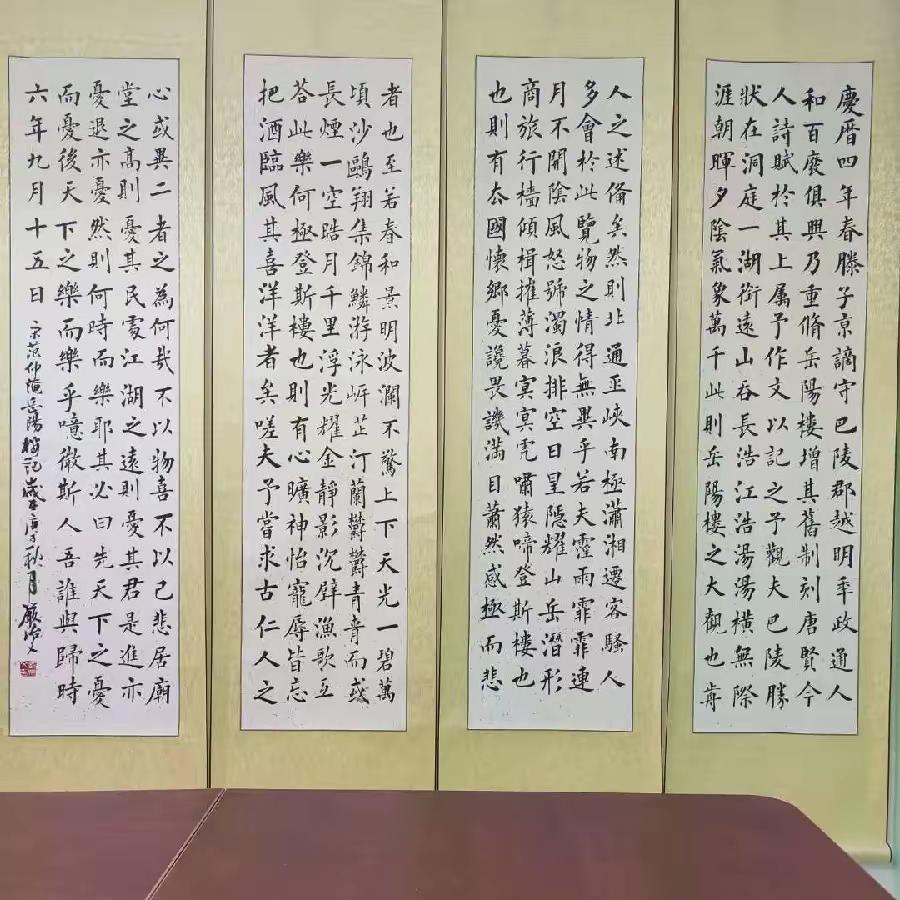 慶曆四年春滕子京謫守巴陵郡越明年政通人
和百廢俱興乃重脩岳陽樓增其舊制刻唐賢今
人詩賦於其上属予作文以記之予觀夫巴陵勝
狀在洞庭一湖銜遠山吞長浩江浩湯湯橫無際
涯朝暉夕陰氣象萬千此則岳陽樓之大觀也前
人之述俻矣然則北通巫峽南極瀟湘遷客騷人
多會於此覽物之情得無異乎若夫霪雨霏霏連
月不開陰風怒號濁浪排空日星隱耀山岳潛形
商旅行檣傾楫摧薄暮冥冥虎嘯猿啼登斯樓也
也則有去國懷鄉憂讒畏譏滿目蕭然感極而悲
者也至若春和景明波瀾不驚上下天光一碧萬
頃沙鷗翔集錦鱗游泳岸芷汀蘭鬱鬱青青而或
長煙一空皓月千里浮光耀金靜影沉璧漁歌互
荅此樂何極登斯樓也則有心曠神怡寵辱皆忘
把酒臨風其喜洋洋者矣嗟夫予嘗求古仁人之
心或異二者之為何哉不以物喜不以己悲居廟
堂之高則憂其民處江湖之遠則憂其君是進亦
憂退亦憂然則何時而樂耶其必曰先天下之憂
而憂後天下之樂而樂乎噫微斯人吾誰與歸時
六年九月十五日
宋范仲淹岳陽樓記歲在庚子秋月